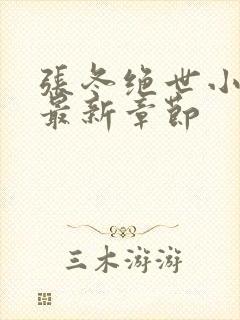 張冬绝世小
最新章節
三木游游